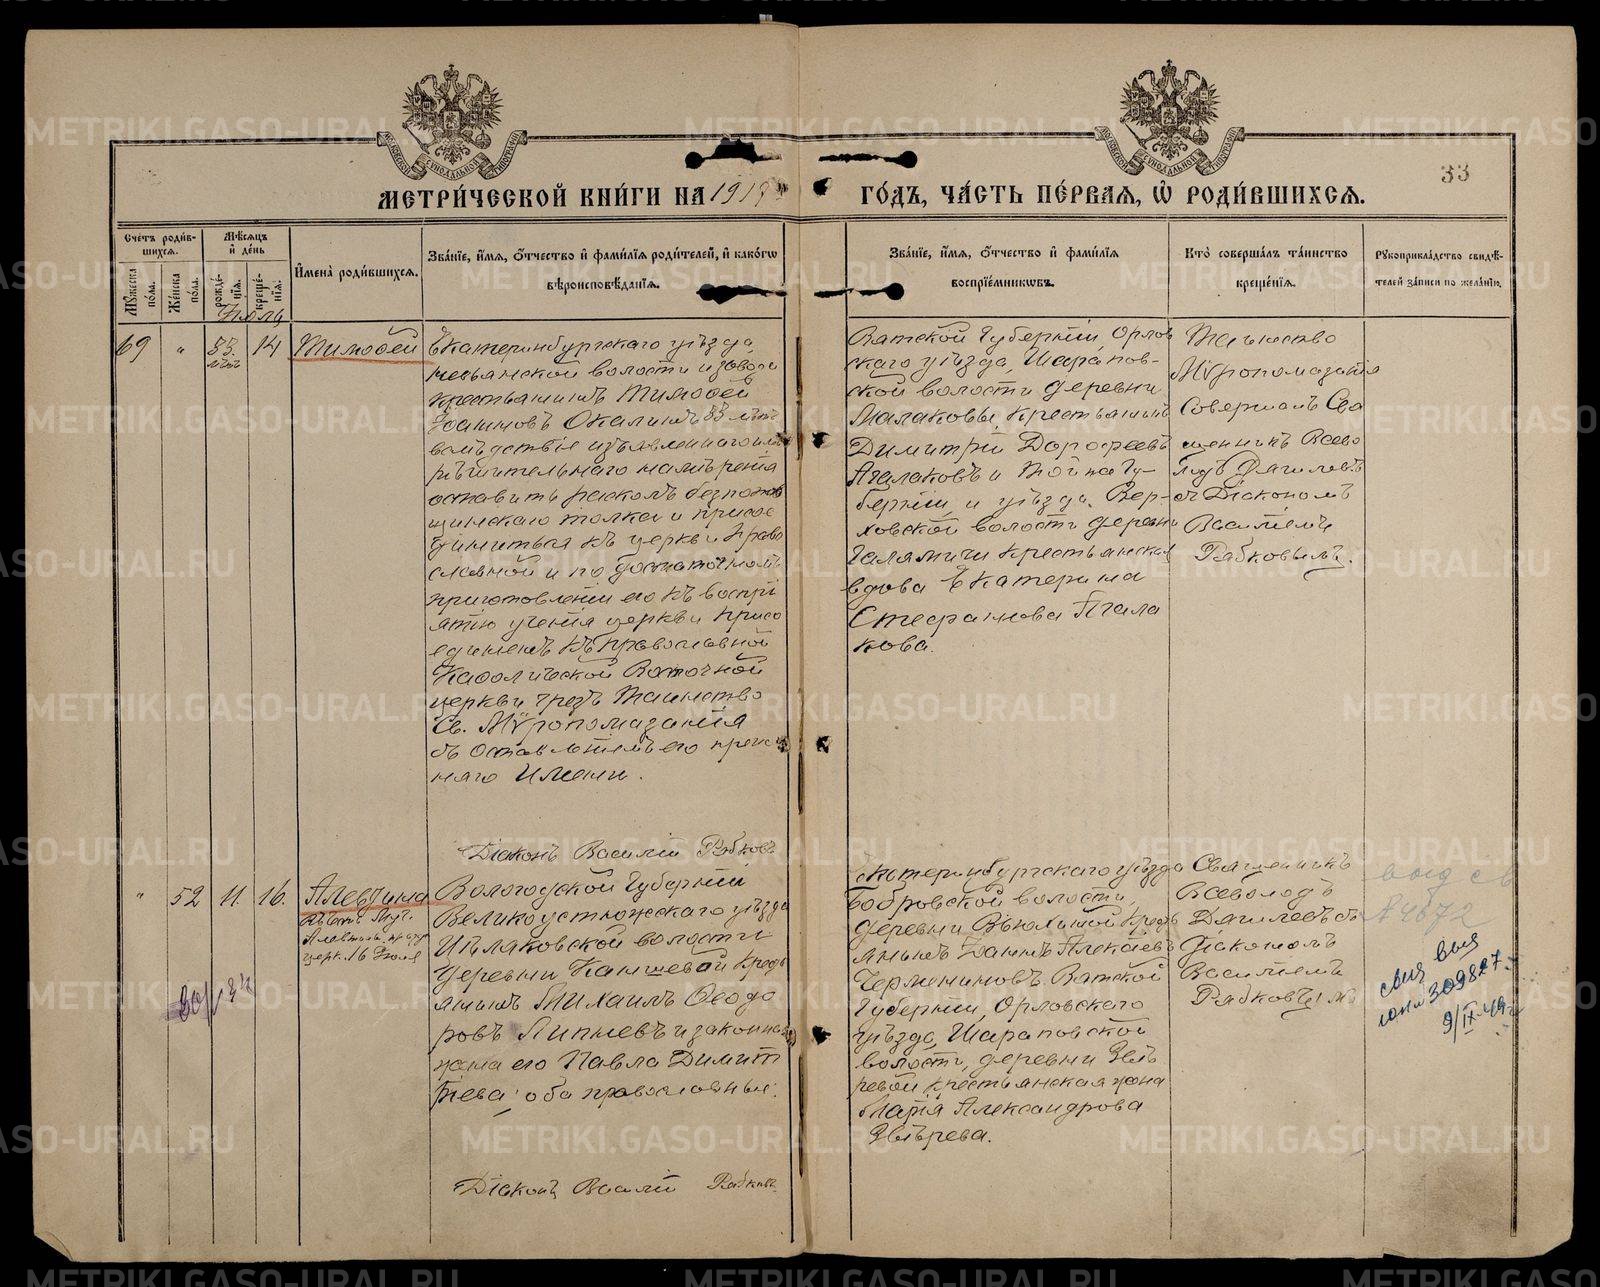 33
МЕТРИ́ЧЕСКОЙ КНИ́ГИ НА 1917 ГО́ДЪ, ЧА́СТЬ ПЕ́РВАЯ, Ѡ҆ РОДИ́ВШИХСЯ.
Сче́тъ роди́в-
шихся.
Мꙋ́жеска по́ла.
Же́нска по́ла.
Мѣ́сяцъ
и҆ де́нь
рожде́-
нїя.
креще́-
нїя.
И҆мена̀ роди́вшихся.
Зва́нїе, и҆́мя, ѻ҆́тчество и҆ фами́лїя роди́телей, и҆ како́гѡ
вѣроисповѣ́данїя.
Зва́нїе, и҆́мя, ѻ҆́тчество и҆ фами́лїя
воспрїе́мникѡвъ.
Кто̀ соверша́лъ та́инство
креще́нїя.
Рꙋкоприкла́дство свидѣ́-
телей за́писи по жела́нїю.
Іюль
69 " 33 лѣтъ 14 Тимоѳей
Екатеринбургскаго уѣзда,
Невьянской волости и завода
крестьянинъ Тимоѳей
Іоанновъ Окалинъ 33 лѣтъ
вслѣдствіе изъявленнаго имъ
рѣшительнаго намѣренія
оставить расколъ безпопов
щинскаго толка и присое
диниться къ церкви Право
славной и по достаточномъ
приготовленіи его къ воспрі
ятію ученія церкви присо
единенъ къ православной
Каѳолической Восточной
церкви чрезъ Таинство
Св. Мѵропомазанія
съ оставленіемъ его преж
няго имени.
Діаконъ Василій Рябковъ
Вятской Губерніи, Орлов
скаго уѣзда, Шарапов-
ской волости деревни
Малаковы, крестьянинъ
Димитрій Дороѳеевъ
Агалаковъ и той же Гу-
берніи и уѣзда, Вер-
ховской волости деревни
Галямичи крестьянская
вдова Екатерина
Стефанова Агала
кова.
Таинство
Мѵропомазанія
Совершалъ Свя
щенникъ Всево
лодъ Дягилевъ
съ Діакономъ
Василіемъ
Рябковымъ.
" 52 11. 16. Алевтина
церк. 16 Іюля
Вологодской Губерніи
Великоустюжскаго уѣзда
Шиляковской волости
деревни Каншевой крест
янинъ Михаилъ Ѳеодо
ровъ Липневъ и законная
жена его Павла Димит
ріева; оба православные.
Діаконъ Василій Рябковъ
Екатеринбургскаго уѣзда
Бобровской волости,
деревни Вьюхиной крест
янинъ Іоаннъ Алексіевъ
Черемениновъ Вятской
Губерніи, Орловскаго
уѣзда, Шараповской
волости, деревни Звѣ
ревой крестьянская жена
Марія Александрова
Звѣрева.
Священникъ
Всеволодъ
Дягилевъ съ
Діакономъ
Василіемъ
Рябковымъ
выд св
А 4672
свид выд
юни 309827.
9/IX-49г
METRIKI.GASO-URAL.RU